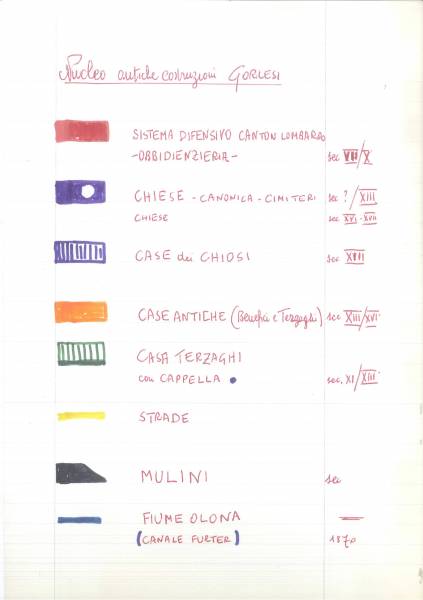 Nucleo antiche costruzioni GORLESI
SISTEMA DIFENSIVO CANTON LOMBARDO
-OBBIDIENZIERIA- sec VII/X
CHIESE - CANONICA - CIMITERI sec ?/XIII
CHIESE sec XVI-XVII
CASE dei CHIOSI sec XVIII
CASE ANTICHE (Benefici e Terzaghi) sec XIII/XVI
CASA TERZAGHI
con CAPPELLA sec. XI/XIII
STRADE
MULINI sec
FIUME OLONA
(CANALE FURTER) 1870